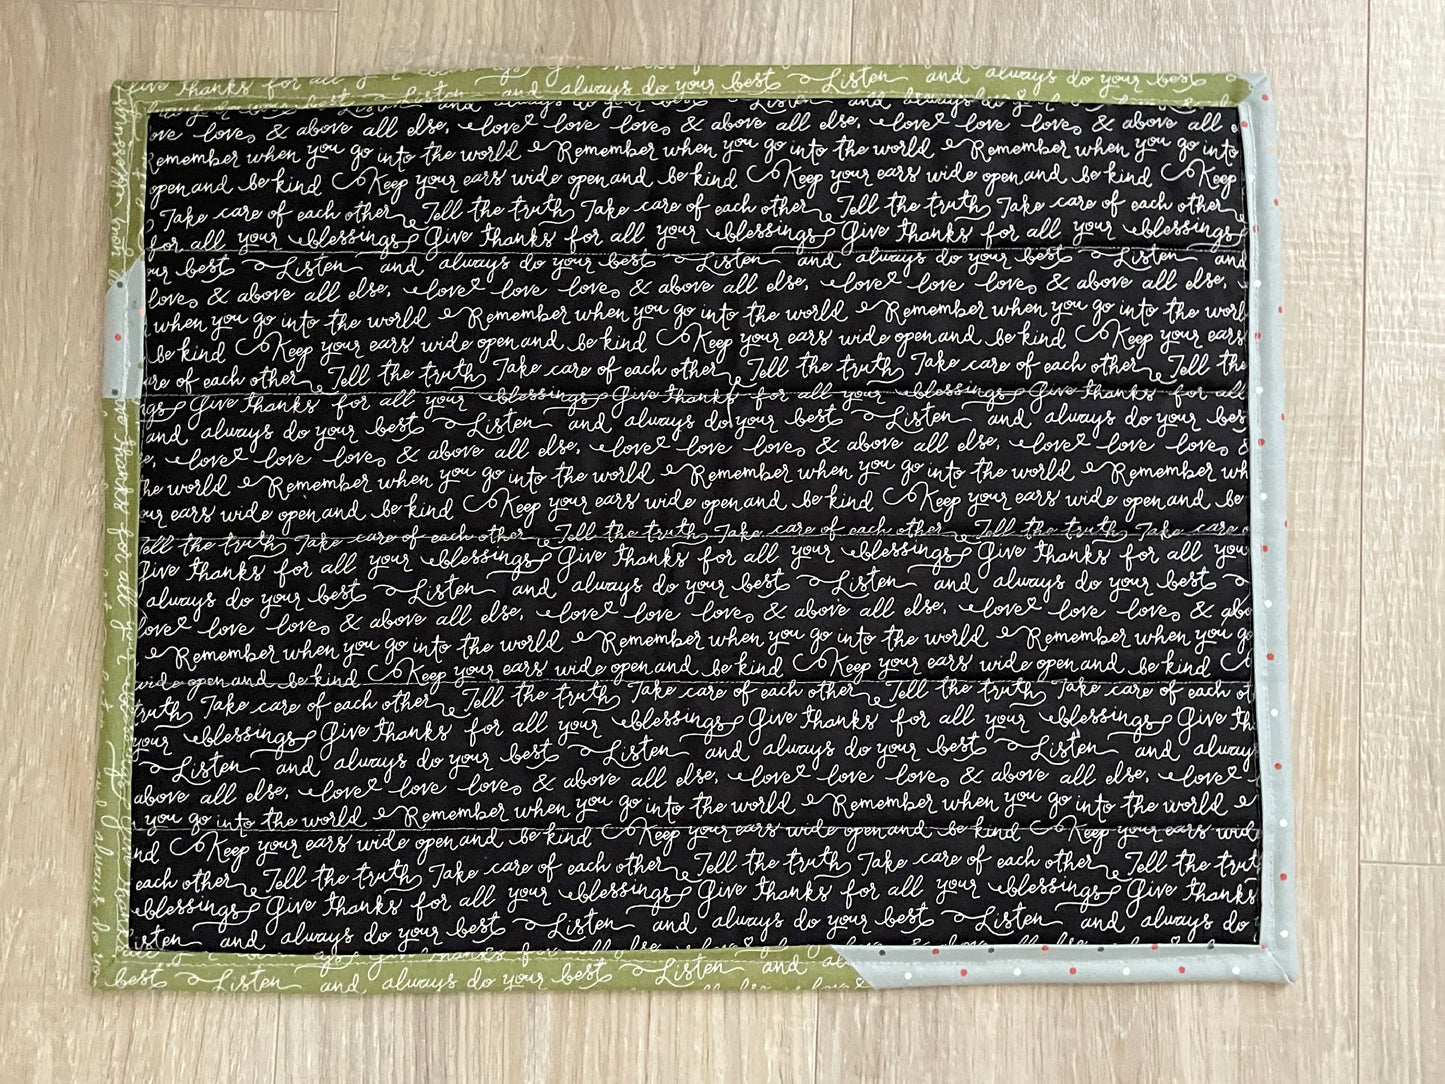 give thanks for all
always do your best Listen and always do your best
and always do your best Listen and always do
love love & above all else, love love love & above all else, love love love & above all
Remember when you go into the world Remember when you go into the world Remember when you go into
open and be kind Keep your ears wide open and be kind Keep your ears wide open and be kind Keep
Take care of each other Tell the truth Take care of each other Tell the truth Take care of each other
for all your blessings Give thanks for all your blessings Give thanks for all your blessings
ur best Listen and always do your best Listen and always do your best Listen and
love & above all else, love love love & above all else, love love love & above all else,
when you go into the world Remember when you go into the world Remember when you go into the world
be kind Keep your ears wide open and be kind Keep your ears wide open and be kind Keep your ears
are of each other Tell the truth Take care of each other Tell the truth Take care of each other Tell the
ngs Give thanks for all your blessings Give thanks for all your blessings Give thanks for all
and always do your best Listen and always do your best Listen and always do your bes
love love love & above all else, love love love & above all else, love love love &
the world Remember when you go into the world Remember when you go into the world Remember wh
our ears wide open and be kind Keep your ears wide open and be kind Keep your ears wide open and be
Tell the truth Take care of each other Tell the truth Take care of each other Tell the truth Take care o
Give thanks for all your blessings Give thanks for all your blessings Give thanks for all your
always do your best Listen and always do your best Listen and always do your best
love love love & above all else, love love love & above all else, love love love & abo
Remember when you go into the world Remember when you go into the world Remember when you go
wide open and be kind Keep your ears wide open and be kind Keep your ears wide open and be kind
truth Take care of each other Tell the truth Take care of each other Tell the truth Take care of each ot
your blessings Give thanks for all your blessings Give thanks for all your blessings Give th
Listen and always do your best Listen and always do your best Listen and alway
above all else, love love love & above all else, love love love & above all else, love love
you go into the world Remember when you go into the world Remember when you go into the world
nd Keep your ears wide open and be kind Keep your ears wide open and be kind Keep your ears wid
each other Tell the truth Take care of each other Tell the truth Take care of each other Tell the trut
blessings Give thanks for all your blessings Give thanks for all your blessings Give thanks
isten and always do your best Listen and always do your best Listen and always do
best Listen and always do your best Listen and al
your blessings
give thanks for all your blessings Give thanks
and always do